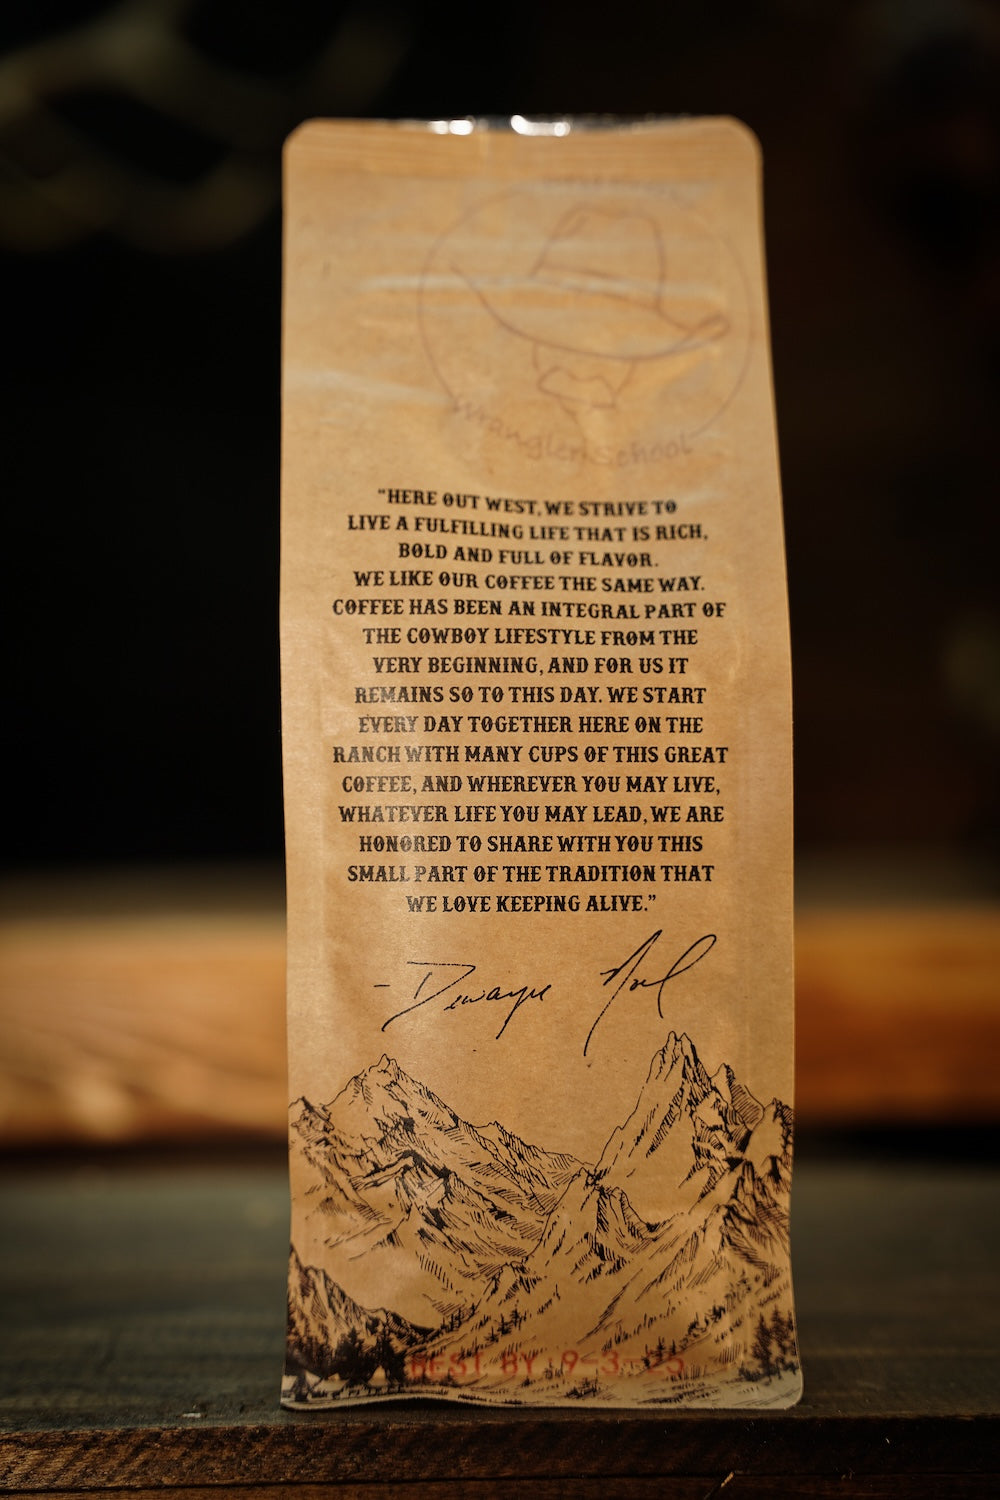 Wrangler School
"HERE OUT WEST, WE STRIVE TO
LIVE A FULFILLING LIFE THAT IS RICH,
BOLD AND FULL OF FLAVOR.
WE LIKE OUR COFFEE THE SAME WAY.
COFFEE HAS BEEN AN INTEGRAL PART OF
THE COWBOY LIFESTYLE FROM THE
VERY BEGINNING, AND FOR US IT
REMAINS SO TO THIS DAY. WE START
EVERY DAY TOGETHER HERE ON THE
RANCH WITH MANY CUPS OF THIS GREAT
COFFEE, AND WHEREVER YOU MAY LIVE,
WHATEVER LIFE YOU MAY LEAD, WE ARE
HONORED TO SHARE WITH YOU THIS
SMALL PART OF THE TRADITION THAT
WE LOVE KEEPING ALIVE."
- Dewayne Noel
BEST BY 9-3-25